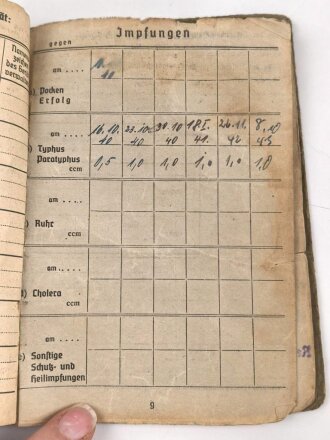 ät:
gegen
Impfungen
am ....
10
) Pocken
Erfolg
am ....
16.10. 23.10. 30.10 18.I. 26.11. 8.10
) Typhus 40 40 40 41. 42 43
Paratyphus 0,5 1,0 1,0 1,0 1,0 1,0
ccm
am ....
) Ruhr
ccm
am ....
) Cholera
ccm
am ....
) Sonstige
Schutz- und
Heilimpfungen
9